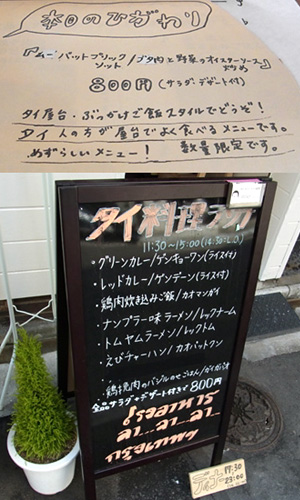 本日のひがわり
『ムーパットプリックソット/ブタ肉と野菜のオイスターソース炒め』
800円 (サラダ・デザート付)
タイ屋台・ぶっかけご飯スタイルでどうぞ!
タイ人の方が屋台でよく食べるメニューです。
めずらしいメニュー! 数量限定です。
タイ料理ランチ
11:30〜15:00 (14:30 L.O.)
・グリーンカレー/ゲンキョーワン(ライス付)
・レッドカレー/ゲンデーン(ライス付)
・鶏肉炊込みご飯/カオマンガイ
・ナンプラー味ラーメン/レックナーム
・トムヤムラーメン/レックトム
・えびチャーハン/カオパットクン
・鶏挽肉のバジルのせごはん/ガイガパオ
全品サラダ・デザート付きで800円
เรืออาหาร
ลา...ลา...ลา
กรุงเทพฯ
ディナー 17:30
23:00